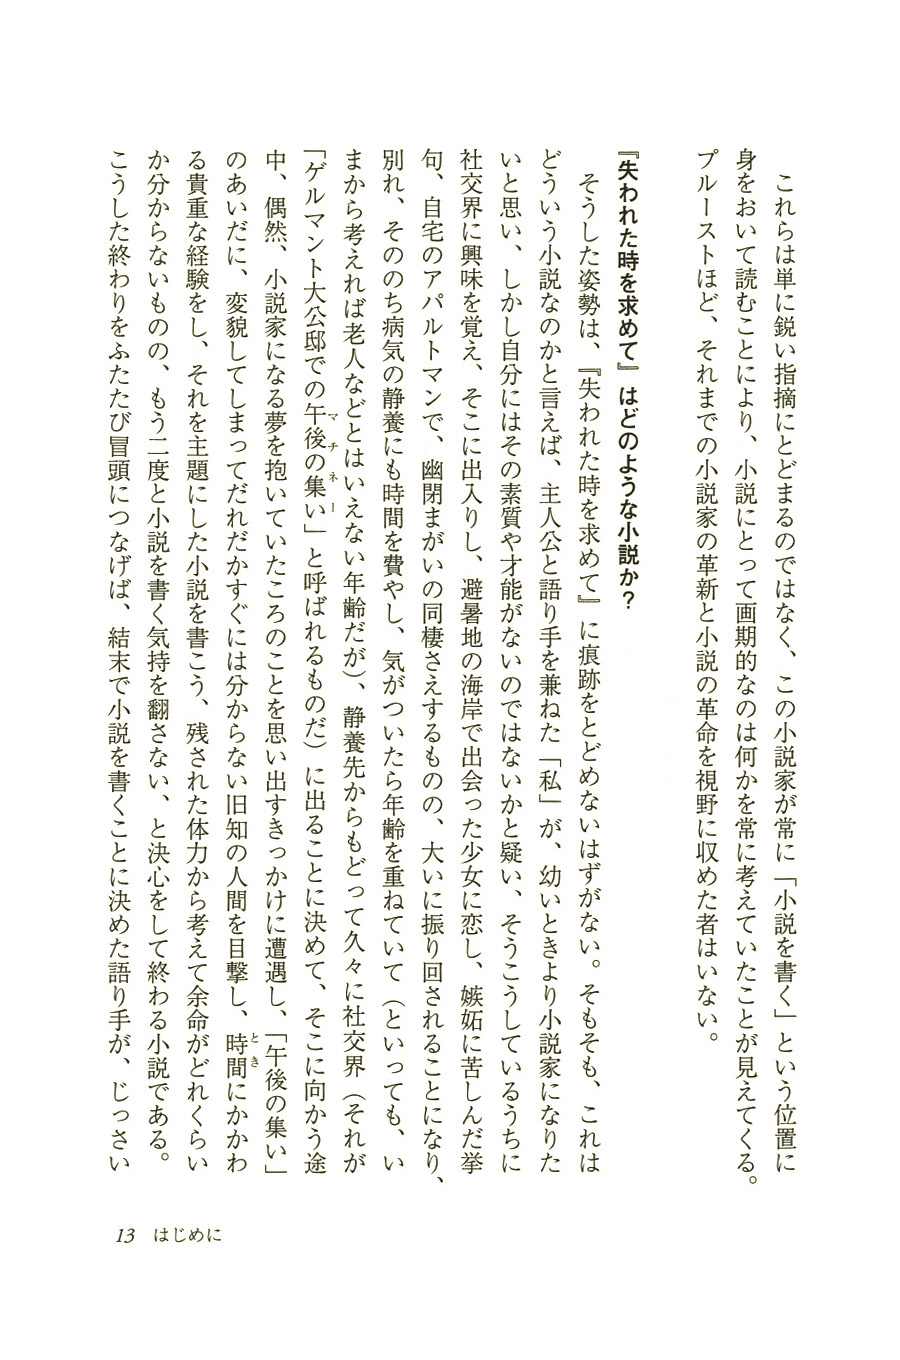 これらは単に鋭い指摘にとどまるのではなく、この小説家が常に「小説を書く」という位置に
身をおいて読むことにより、小説にとって画期的なのは何かを常に考えていたことが見えてくる。
プルーストほど、それまでの小説家の革新と小説の革命を視野に収めた者はいない。
『失われた時を求めて』はどのような小説か?
そうした姿勢は、『失われた時を求めて』に痕跡をとどめないはずがない。そもそも、これは
どういう小説なのかと言えば、主人公と語り手を兼ねた「私」が、幼いときより小説家になりた
いと思い、しかし自分にはその素質や才能がないのではないかと疑い、そうこうしているうちに
社交界に興味を覚え、そこに出入りし、避暑地の海岸で出会った少女に恋し、嫉妬に苦しんだ挙
句、自宅のアパルトマンで、幽閉まがいの同棲さえするものの、大いに振り回されることになり、
別れ、そののち病気の静養にも時間を費やし、気がついたら年齢を重ねていて（といっても、い
まから考えれば老人などとはいえない年齢だが）、静養先からもどって久々に社交界（それが
「ゲルマント大公邸での午後の集い」と呼ばれるものだ）に出ることに決めて、そこに向かう途
マチネー
中、偶然、小説家になる夢を抱いていたころのことを思い出すきっかけに遭遇し、「午後の集い」
のあいだに、変貌してしまってだれだかすぐには分からない旧知の人間を目撃し、時間にかかわ
とき
る貴重な経験をし、それを主題にした小説を書こう、残された体力から考えて余命がどれくらい
か分からないものの、もう二度と小説を書く気持を翻さない、と決心をして終わる小説である。
こうした終わりをふたたび冒頭につなげば、結末で小説を書くことに決めた語り手が、じっさい
13 はじめに